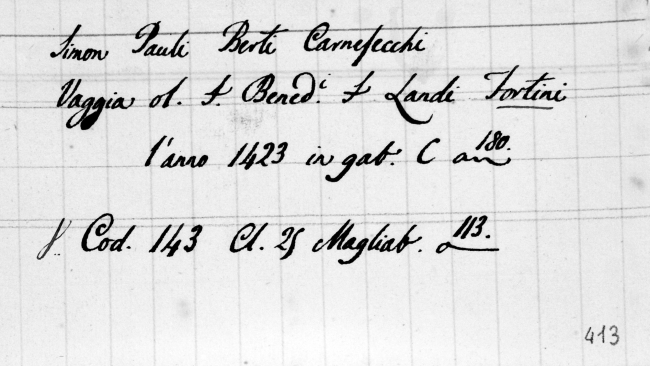 Simon Pauli Berti Carnesecchi
Vaggia ol. S. Bened.i S Landi Fortini
l'anno 1423 in gab. C an 180.
Cod. 143 Cl. 25 Magliab. a 113.
413